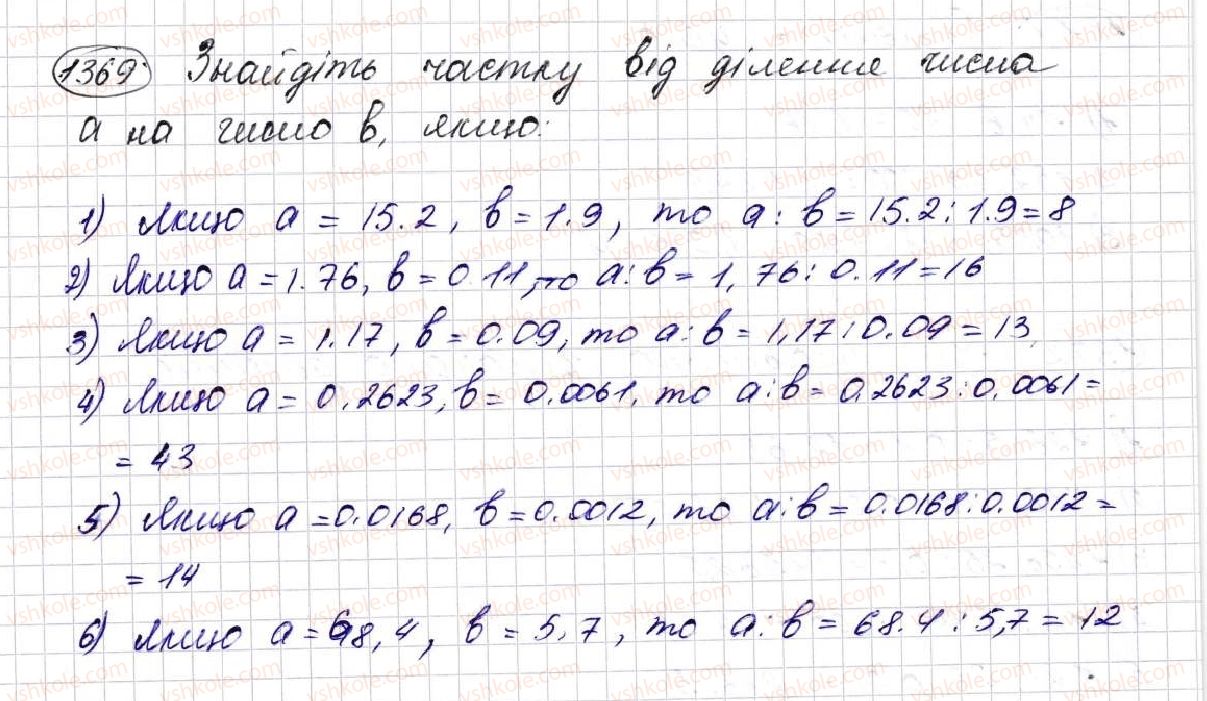 1369 Знайдіть частку від ділення числа
a на число b, якщо:
1) Якщо a = 15.2, b = 1.9, то a : b = 15.2 : 1.9 = 8
2) Якщо a = 1.76, b = 0.11, то a : b = 1,76 : 0.11 = 16
3) Якщо a = 1.17, b = 0.09, то a : b = 1,17 : 0.09 = 13
4) Якщо a = 0.2623, b = 0.0061, то a : b = 0.2623 : 0.0061 =
= 43
5) Якщо a = 0.0168, b = 0.0012, то a : b = 0.0168 : 0.0012 =
= 14
6) Якщо a = 68,4, b = 5,7, то a : b = 68.4 : 5,7 = 12